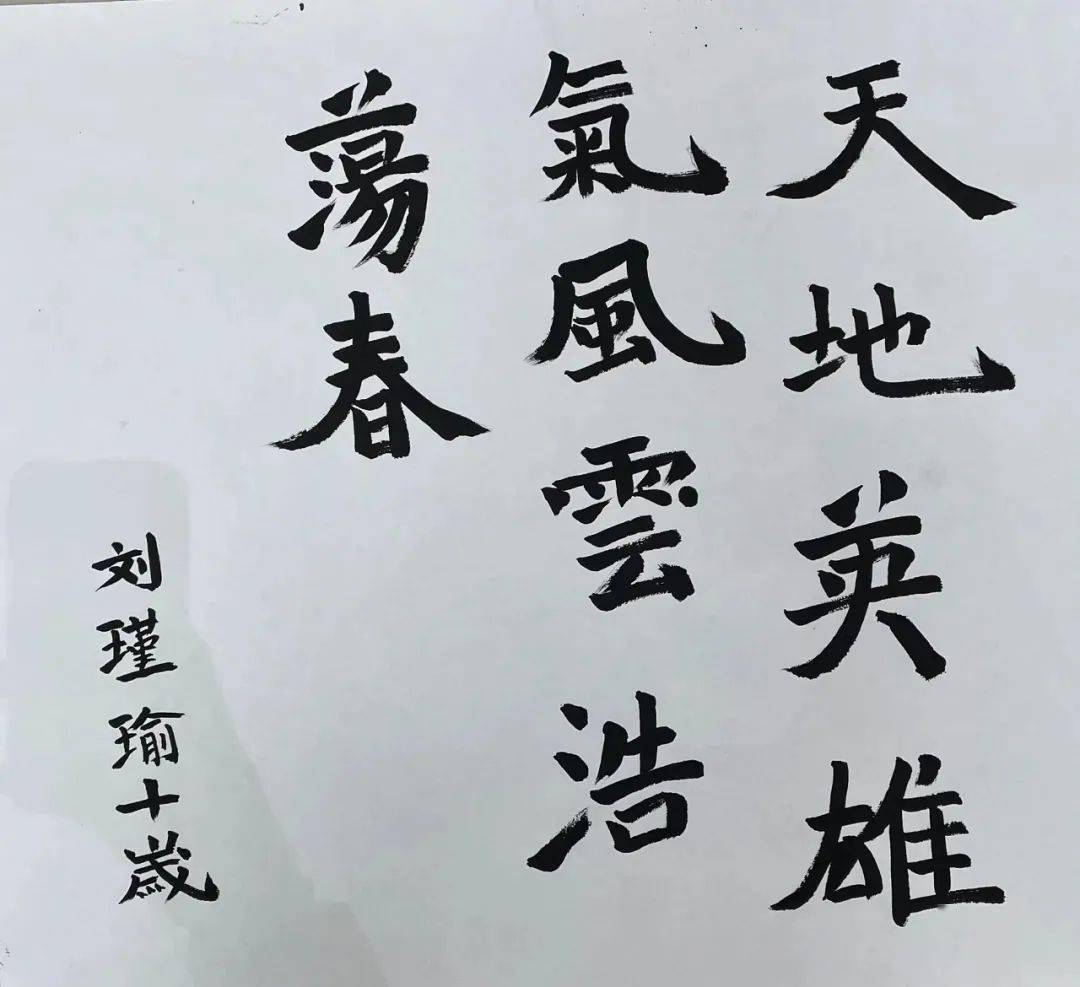 天地英雄
氣風雲浩
蕩春
刘瑾瑜十歲